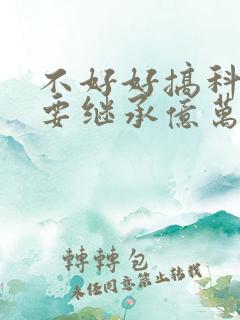 不好好搞科
要继承億萬
轉轉包
未经同意禁止转载